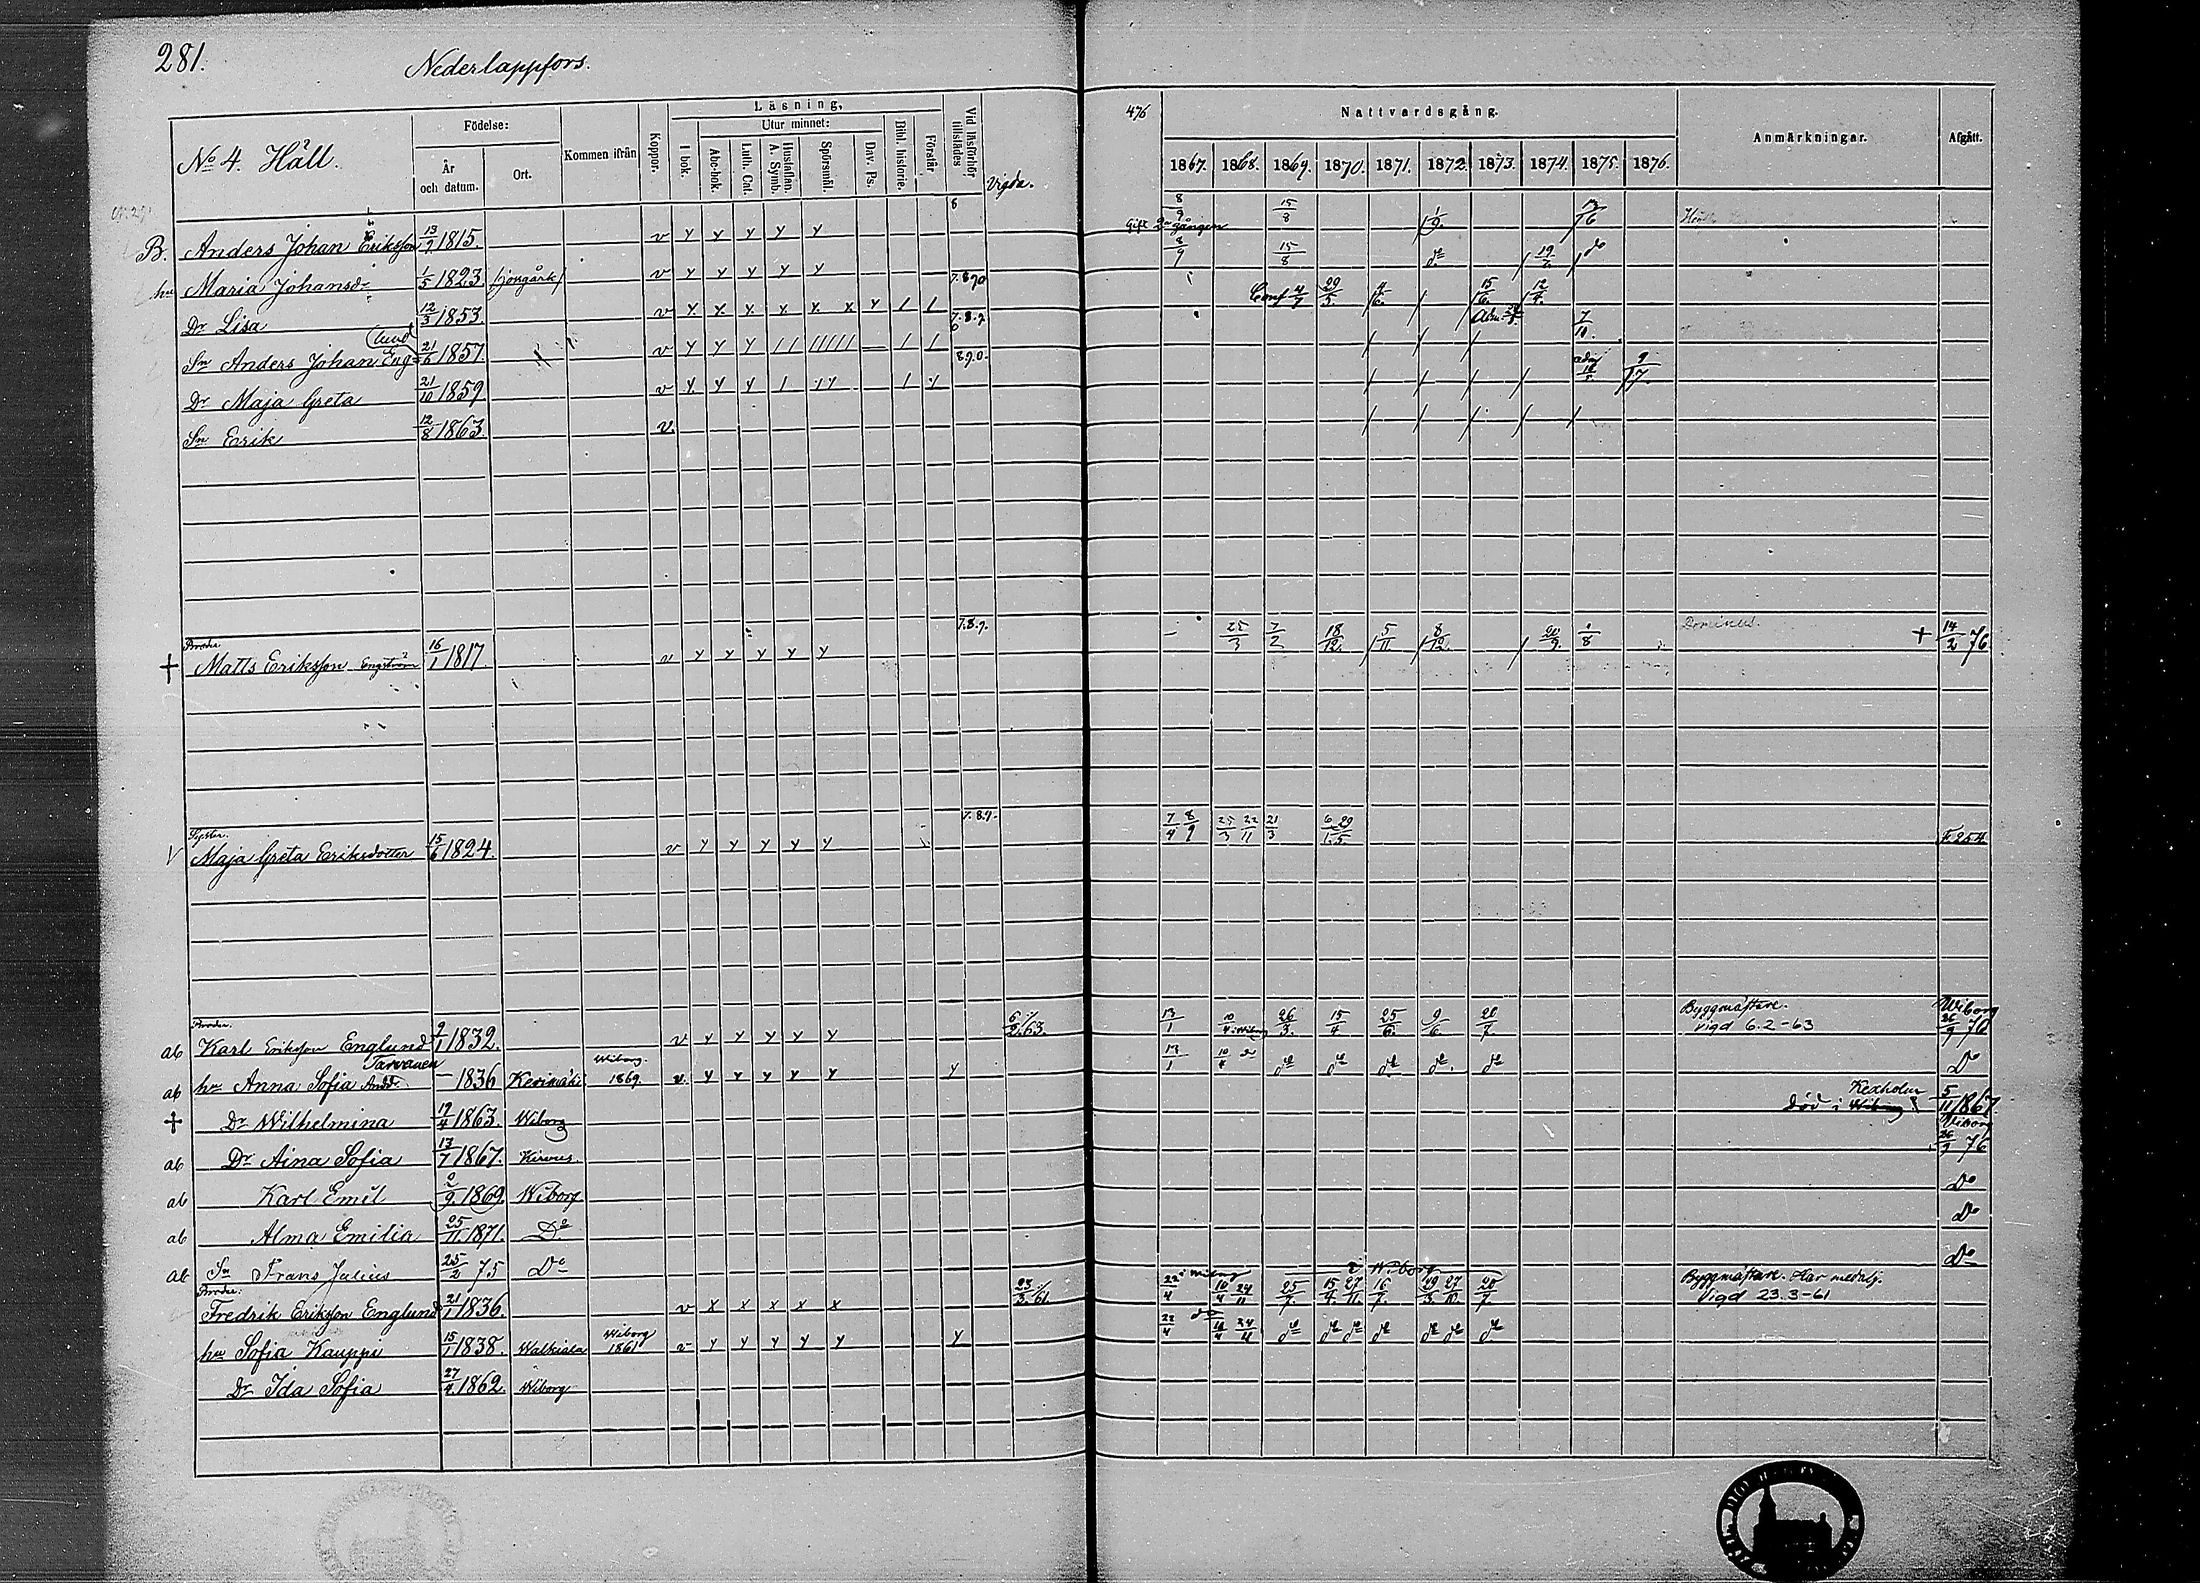 281.
Nederlappfors.
No 4. Häll.
Födelse:
År och datum.
Ort.
Kommen ifrån
Koppor.
Läsning.
I bok.
Utur minnet:
Abc-bok.
Luth. Cat.
Hustaflan. A. Symb.
Spörsmål.
Dav. Ps.
Bibl. historie.
Förstår
Vid läsförhör tillstädes
Vigda.
476
Nattvardsgång.
1867. 1868. 1869. 1870. 1871. 1872. 1873. 1874. 1875. 1876.
Anmärkningar.
Afgått.
B. Anders Johan Eriksson 13/9 1815. v y y y y y 8 Gift 2 gången 8/9 15/8
hu Maria Johansd. 1/5 1823. v y y y y y 7.8 90 8/9 15/8 do
Dr Lisa 12/3 1853. v 7.8.9 Conf 4/7 29/5. 15/6. 12/4.
Sn Anders Johan Eng(lund 21/6 1857. v y y y 890. 7/10.
Dr Maja Greta 21/10 1859 v y y y 9/7.
Sn Erik 12/8 1863. v.
Broder.
+ Matts Eriksson Engström 16/1 1817. v y y y y y 7.8.9. 25/3 7/2 18/12. 5/11 8/12. 1/8 + 14/2 76
Syster.
V Maja Greta Eriksdotter 15/6 1824. v y y y y y 7.8.9. 7/4 8/9 25/3 22/11 21/3 6/1. 29/5. F. 254.
Broder.
ab Karl Eriksson Englund 9/1 1832. v y y y y y 6/2. 63 13/1 10/4 i Wiborg 26/3. 15/4 25/6. 9/6 20/7. Byggmästare. vigd 6.2-63 Wiborg 26/9 76
ab hu Anna Sofia Andd. Tarvanen – 1836 Kerimäki Wiborg. 1869. v. y y y y y y 13/1 10/4 do do do do do do Do
+ Dr Wilhelmina 19/4 1863. Wiborg död i Wiborg Kexholm 5/11 1867
ab Dr Aina Sofia 13/7 1867. Kirvus. Wiborg 26/9 76
ab Karl Emil 2/9 1869. Wiborg Do
ab Alma Emilia 25/11 1871. Do Do
ab Sn Frans Julius 25/2 75 Do Do
Broder.
Fredrik Eriksson Englund 21/1 1836. v x x x x x 23/3. 61 22/4 i Wiborg 10/4 24/11 i Wiborg 25/7. 15/4. 27/11 16/7. 19/3. 27/10. 20/7 Byggmästare. Har medalj. Vigd 23.3-61
hu Sofia Kauppi 15/1 1838. Walkiala Wiborg 1861 v y y y y y y 22/4 do 10/4 24/11 do do do do do do do
Dr Ida Sofia 27/4 1862. Wiborg